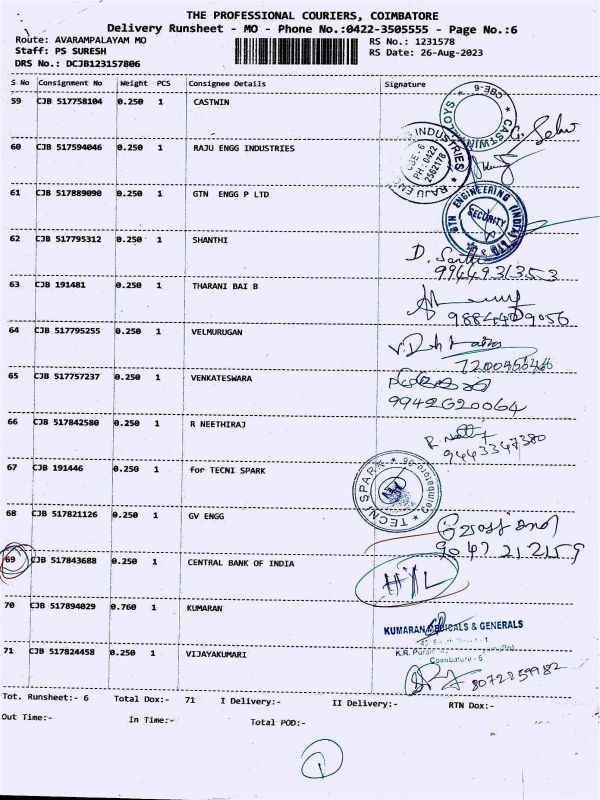 THE PROFESSIONAL COURIERS, COIMBATORE
Delivery Runsheet - MO - Phone No.:0422-3505555 - Page No.:6
Route: AVARAMPALAYAM MO RS No.: 1231578
Staff: PS SURESH RS Date: 26-Aug-2023
DRS No.: DCJB123157806
S No Consignment No Weight PCS Consignee Details Signature
59 CJB 517758104 0.250 1 CASTWIN
CBE-6
60 CJB 517594046 0.250 1 RAJU ENGG INDUSTRIES
INDUSTRIES
CBE - 6
PH : 0422
2562178
61 CJB 517889090 0.250 1 GTN ENGG P LTD
GTN ENGINEERING (INDIA) LTD
SECURITY
62 CJB 517795312 0.250 1 SHANTHI
9944931353
63 CJB 191481 0.250 1 THARANI BAI B
64 CJB 517795255 0.250 1 VELMURUGAN
65 CJB 517757237 0.250 1 VENKATESWARA
9942620064
66 CJB 517842580 0.250 1 R NEETHIRAJ
9443347380
67 CJB 191446 0.250 1 for TECNI SPARK
TECNI SPARK
68 CJB 517821126 0.250 1 GV ENGG
9047212159
69 CJB 517843688 0.250 1 CENTRAL BANK OF INDIA
70 CJB 517894029 0.760 1 KUMARAN
KUMARAN MEDICALS & GENERALS
Coimbatore - 6
71 CJB 517824458 0.250 1 VIJAYAKUMARI
8072259982
Tot. Runsheet:- 6 Total Dox:- 71 I Delivery:- II Delivery:- RTN Dox:-
Out Time:- In Time:- Total POD:-
1